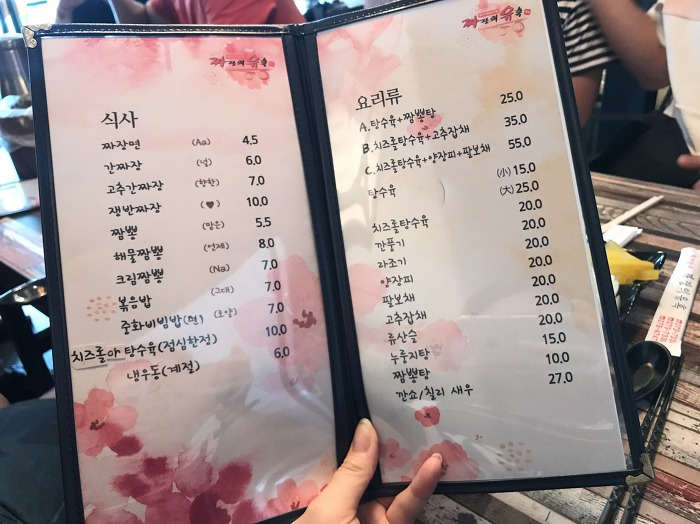 식사
짜장면 (Aa) 4.5
간짜장 (넌) 6.0
고추간짜장 (향한) 7.0
쟁반짜장 (♥) 10.0
짬뽕 (맘은) 5.5
해물짬뽕 (언제) 8.0
크림짬뽕 (Na) 7.0
볶음밥 (그대) 7.0
중화비빔밥(면) 7.0
치즈롤아 탕수육(점심한정) 10.0
냉우동(계절) 6.0
요리류
A.탕수육+짬뽕탕 25.0
B.치즈롤탕수육+고추잡채 35.0
C.치즈롤탕수육+양장피+팔보채 55.0
탕수육 (小)15.0
(大)25.0
치즈롤탕수육 20.0
깐풍기 20.0
라조기 20.0
양장피 20.0
팔보채 20.0
고추잡채 20.0
류산슬 20.0
누룽지탕 15.0
짬뽕탕 10.0
깐쇼/칠리 새우 27.0